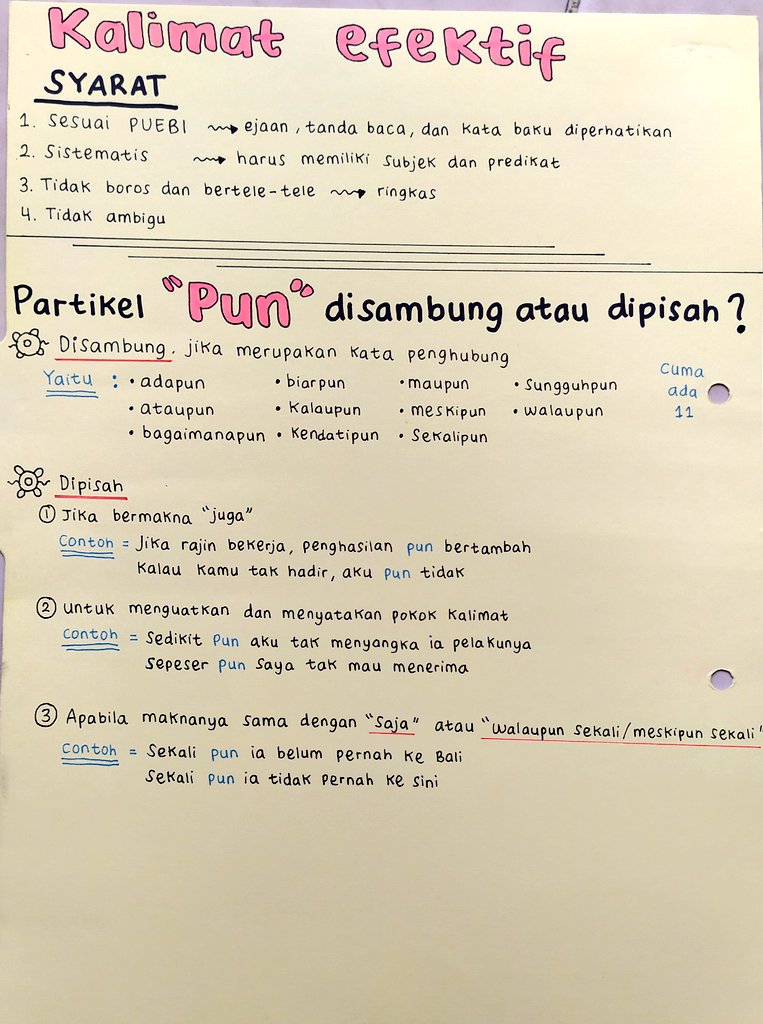 Kalimat efektif
SYARAT
1. Sesuai PUEBI ⟿ ejaan, tanda baca, dan kata baku diperhatikan
2. Sistematis ⟿ harus memiliki subjek dan predikat
3. Tidak boros dan bertele-tele ⟿ ringkas
4. Tidak ambigu
Partikel "Pun" disambung atau dipisah?
Disambung, jika merupakan kata penghubung
Yaitu : • adapun • biarpun • maupun • sungguhpun Cuma
• ataupun • kalaupun • meskipun • walaupun ada
• bagaimanapun • kendatipun • sekalipun 11
Dipisah
① Jika bermakna "juga"
Contoh = Jika rajin bekerja, penghasilan pun bertambah
Kalau kamu tak hadir, aku pun tidak
② untuk menguatkan dan menyatakan pokok kalimat
Contoh = Sedikit pun aku tak menyangka ia pelakunya
Sepeser pun saya tak mau menerima
③ Apabila maknanya sama dengan "saja" atau "walaupun sekali/meskipun sekali"
Contoh = Sekali pun ia belum pernah ke Bali
Sekali pun ia tidak pernah ke sini